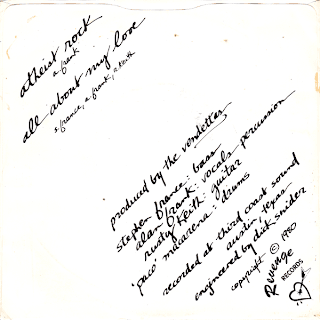 atheist rock
a. frank
all about my love
s. france, a. frank, r. keith
produced by the vendettas
stephen france: bass
alan frank: vocals percussion
rusty keith: guitar
'paco' macarena: drums
recorded at third coast sound
austin, texas
engineered by dick snider
copyright © 1980
Revenge
RECORDS